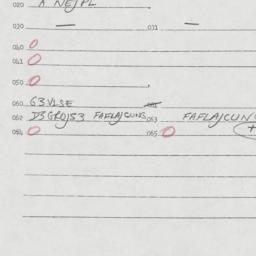 020 A NEJPL
030 — 031 —
040 0
041 0
050 0
060 G3VLSE
062 D3GROJS3 FAFLAJCUNG 063 FAFLAJCUNG
064 0 065 0